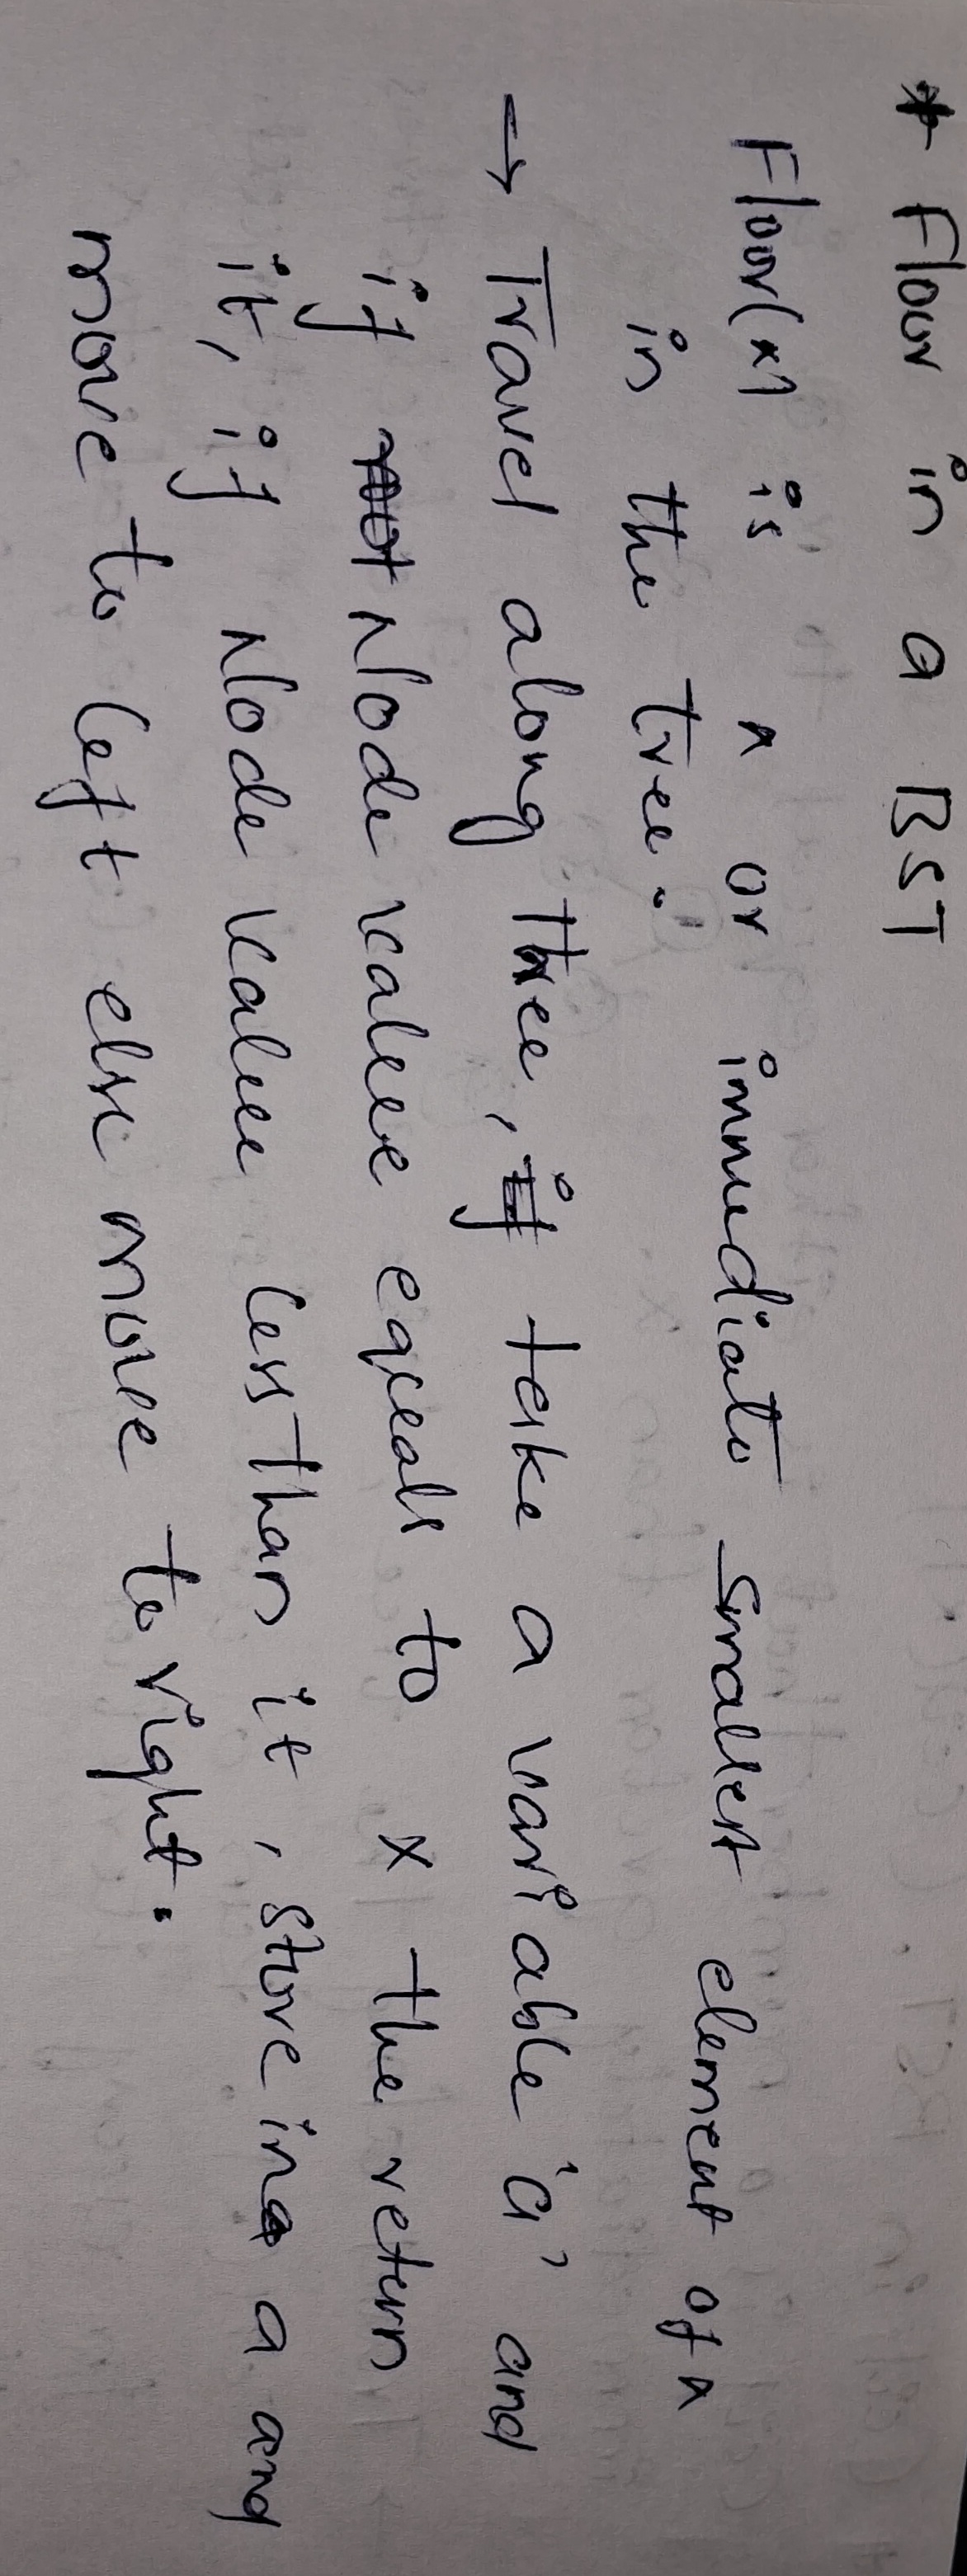 * Floor in a BST
Floor(x) is x or immediate smallest element of x
in the tree.
→ Travel along tree, take a variable 'a' and
if Node value equals to x the return
it, if Node value less than it, store in a and
move to left else move to right.